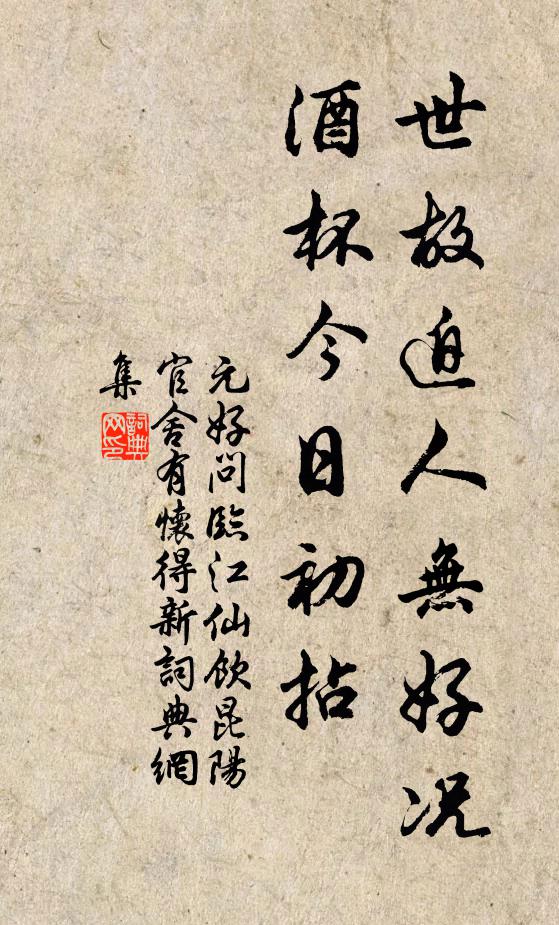 世故迫人無好況
酒杯今日初拈
元好問臨江仙飲昆陽
官舍有懷得新詞典網
集
詞典
网印